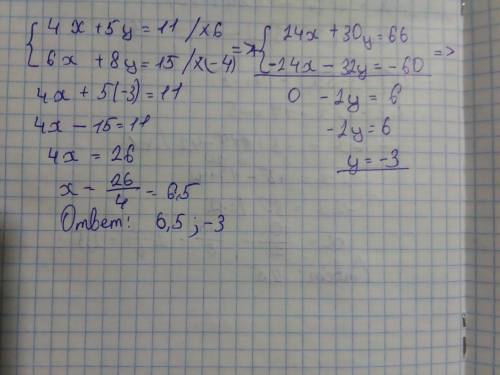 { 4x + 5y = 11 /×6
6x + 8y = 15 /×(-4) =>
{ 24x + 30y = 66
-24x - 32y = -60 =>
0 - 2y = 6
-2y = 6
y = -3
4x + 5(-3) = 11
4x - 15 = 11
4x = 26
x - 26/4 = 6,5
Ответ: 6,5 ; -3